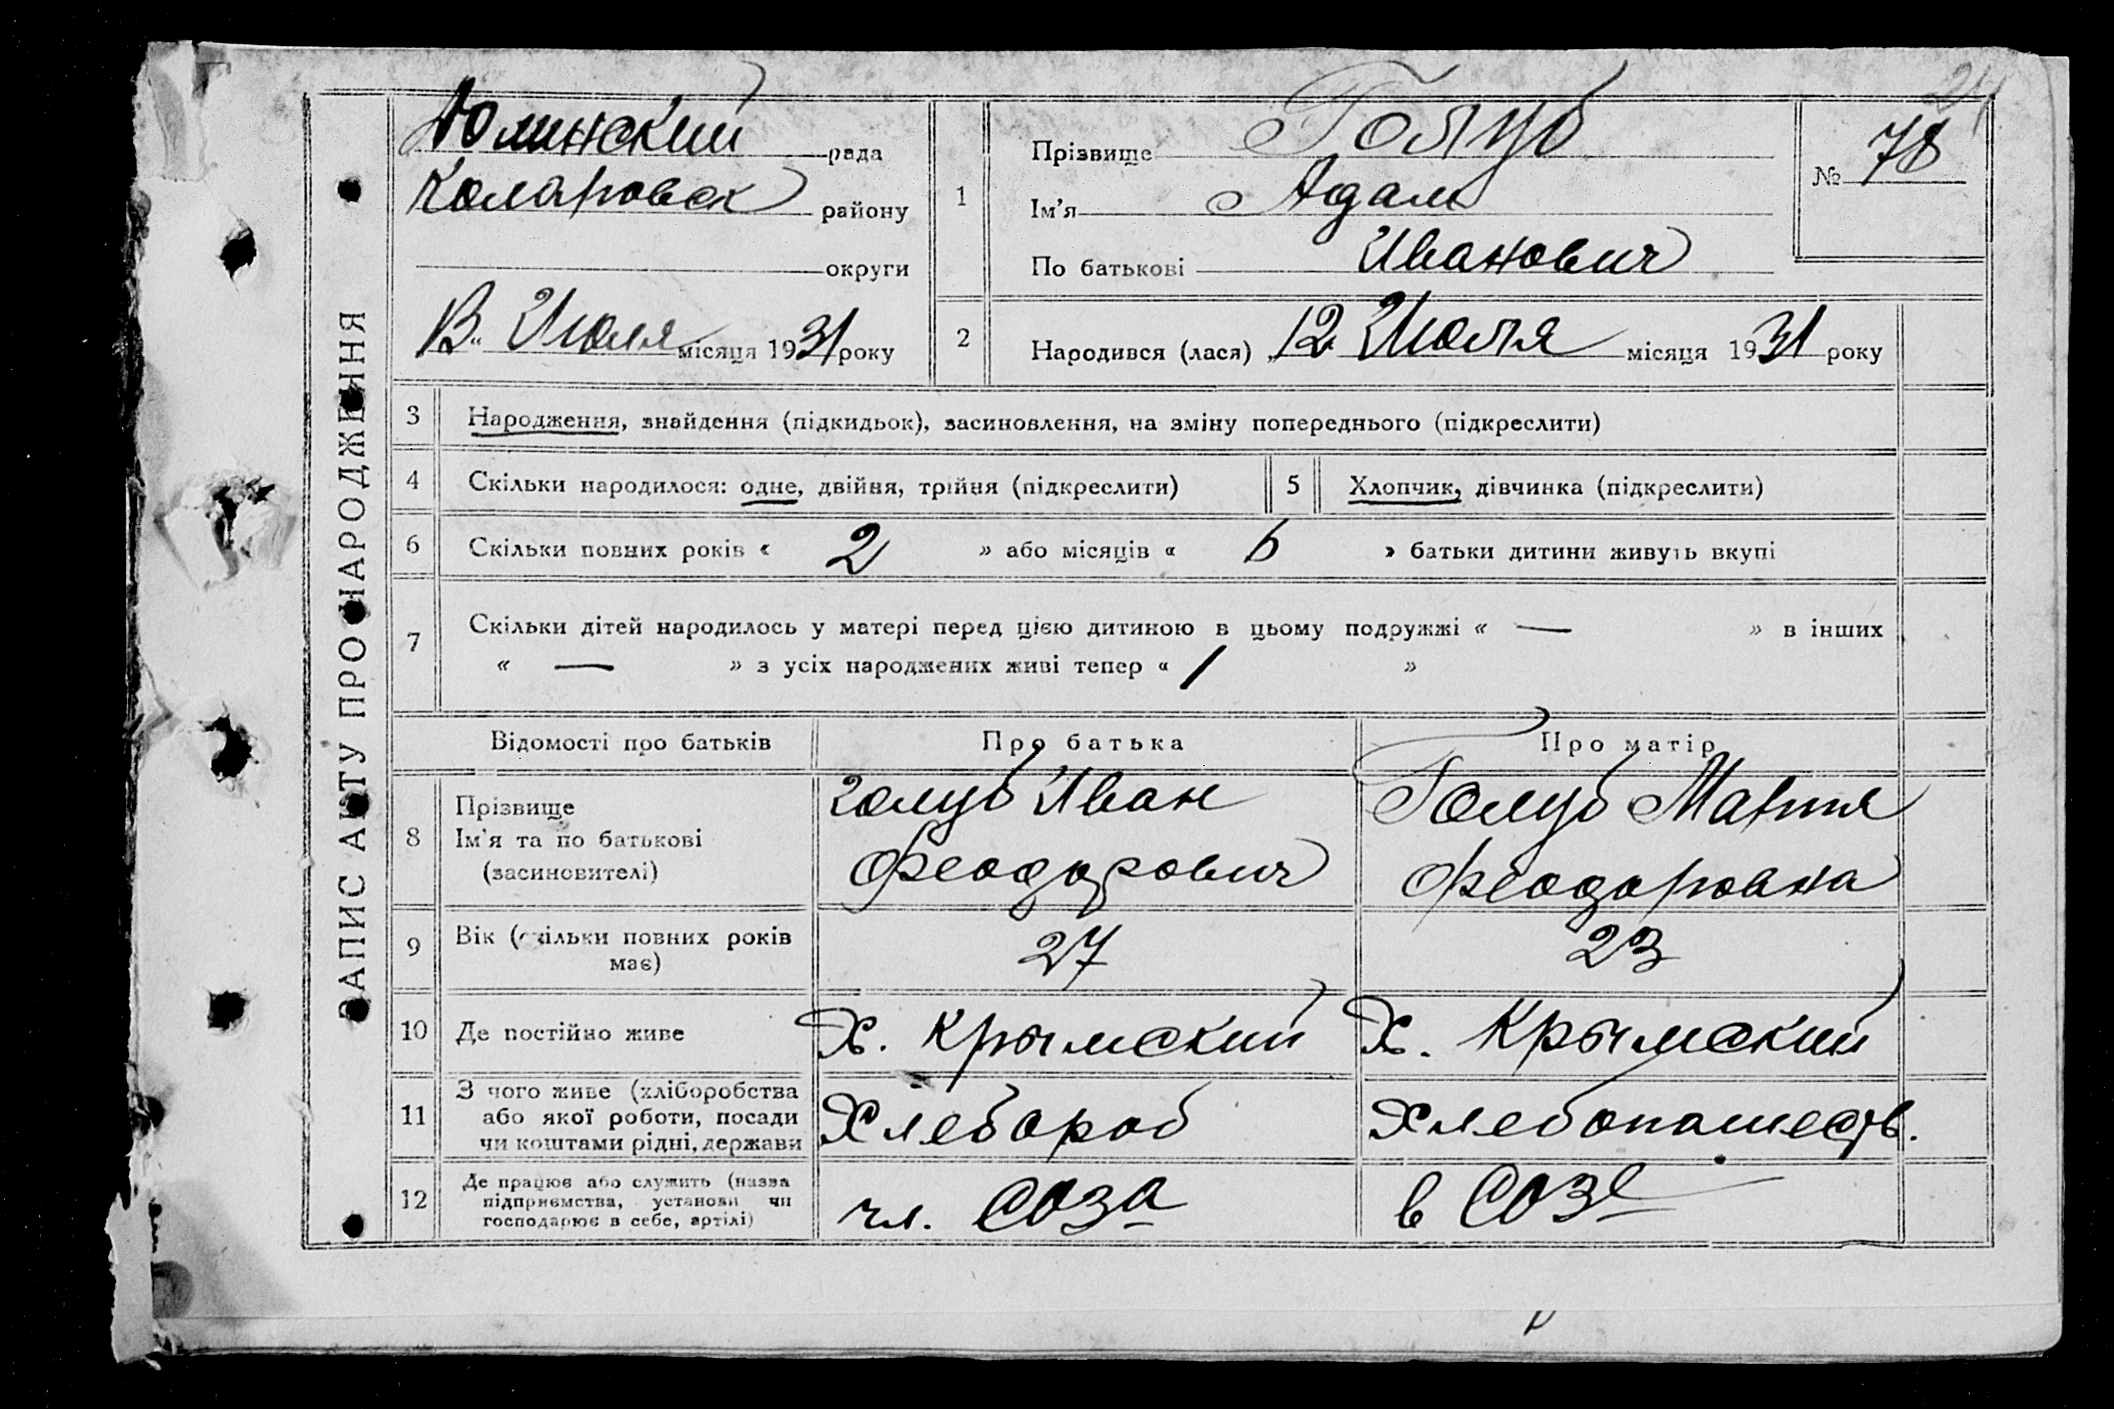 24
ЗАПИС АКТУ ПРО НАРОДЖЕННЯ
Юлинский рада
Коларовск району
округи
13. Июля місяця 1931 року
1
Прізвище Голуб
Ім'я Адам
По батькові Иванович
№ 78
2
Народився (лася) 12 Июля місяця 1931 року
3 Народження, знайдення (підкидьок), засиновлення, на зміну попереднього (підкреслити)
4 Скільки народилося: одне, двійня, трійня (підкреслити) 5 Хлопчик, дівчинка (підкреслити)
6 Скільки повних років « 2 » або місяців « 6 » батьки дитини живуть вкупі
7 Скільки дітей народилось у матері перед цією дитиною в цьому подружжі « — » в інших
« — » з усіх народжених живі тепер « 1 »
Відомості про батьків Про батька Про матір
8 Прізвище
Ім'я та по батькові
(засиновителі)
Голуб Иван
Феодорович
Голуб Мария
Феодоровна
9 Вік (скільки повних років
має)
27
23
10 Де постійно живе Х. Крымский Х. Крымский
11 З чого живе (хліборобства
або якої роботи, посади
чи коштами рідні, держави
Хлебороб
Хлебопашеств.
12 Де працює або служить (назва
підприємства, установи чи
господарює в себе, артілі)
чл. СОЗа
в СОЗе